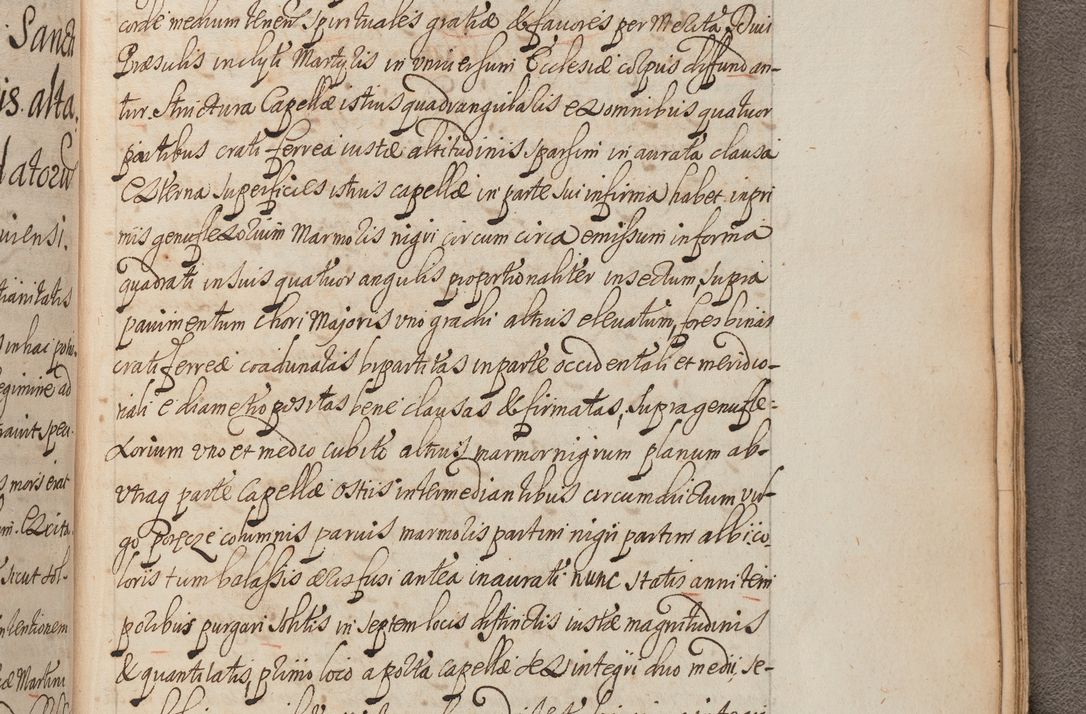 Sancti
is. alta
latoru
uiensi.
tianitatis
in hac
egimine ad
s moris erat
Sicut
intentionem
Martini
corde medium tenens spirituales gratiæ & favores per Melita Divi
Præsulis inclyti Martyris in universum Ecclesiæ corpus difundan-
tur. Structura Capellæ istius quadrangularis ex omnibus quatuor
partibus crati ferrea iustæ altitudinis sparsim in aurata clausa
Externa superficies istius capellæ in parte sui infirma habet inpri
mis genuflexorium Marmoris nigri circum circa emissum in forma
quadrati in suis quatuor angulis proportionaliter insectum, supra
pavimentum Chori Majoris uni gradu altius elevatum, fores binas
crati ferreæ coadunatas bipartitas in parte occidentali et meridio-
nali e diametro positas bene clausas & firmatas, supra genufle-
xorium uno et medio cubito altius marmor nigrum planum ab-
utraq parte Capellæ ostiis intermediantibus circumductum vul-
go Poręcze columnis parvis marmoris partim nigri partim albi: co-
loris tum balassis æris fusi antea inaurati nunc statis anni tem
poribus purgari solitis in septem locis distinctis iustæ magnitudinis
& quantitatis, primo loco a porta capellæ sex integri duo medii, se-